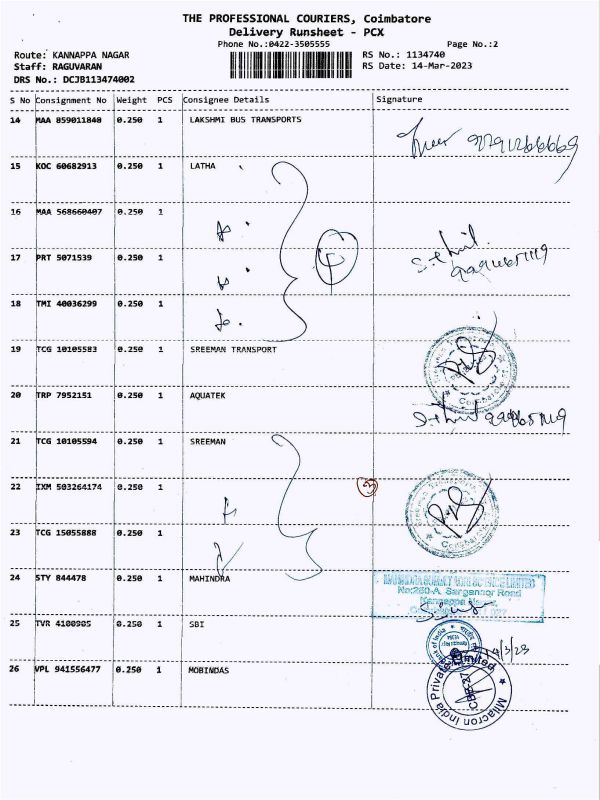 THE PROFESSIONAL COURIERS, Coimbatore
Delivery Runsheet - PCX
Phone No.:0422-3505555 Page No.:2
Route: KANNAPPA NAGAR RS No.: 1134740
Staff: RAGUVARAN RS Date: 14-Mar-2023
DRS No.: DCJB113474002
S No Consignment No Weight PCS Consignee Details Signature
14 MAA 859011840 0.250 1 LAKSHMI BUS TRANSPORTS
15 KOC 60682913 0.250 1 LATHA
16 MAA 568660407 0.250 1
17 PRT 5071539 0.250 1
18 TMI 40036299 0.250 1
19 TCG 10105583 0.250 1 SREEMAN TRANSPORT
20 TRP 7952151 0.250 1 AQUATEK
21 TCG 10105594 0.250 1 SREEMAN
22 IXM 503264174 0.250 1
3
23 TCG 15055888 0.250 1
24 STY 844478 0.250 1 MAHINDRA
No:260-A, Sanganoor Road
25 TVR 4100905 0.250 1 SBI
26 VPL 941556477 0.250 1 MOBINDAS
Milacron India Private Limited